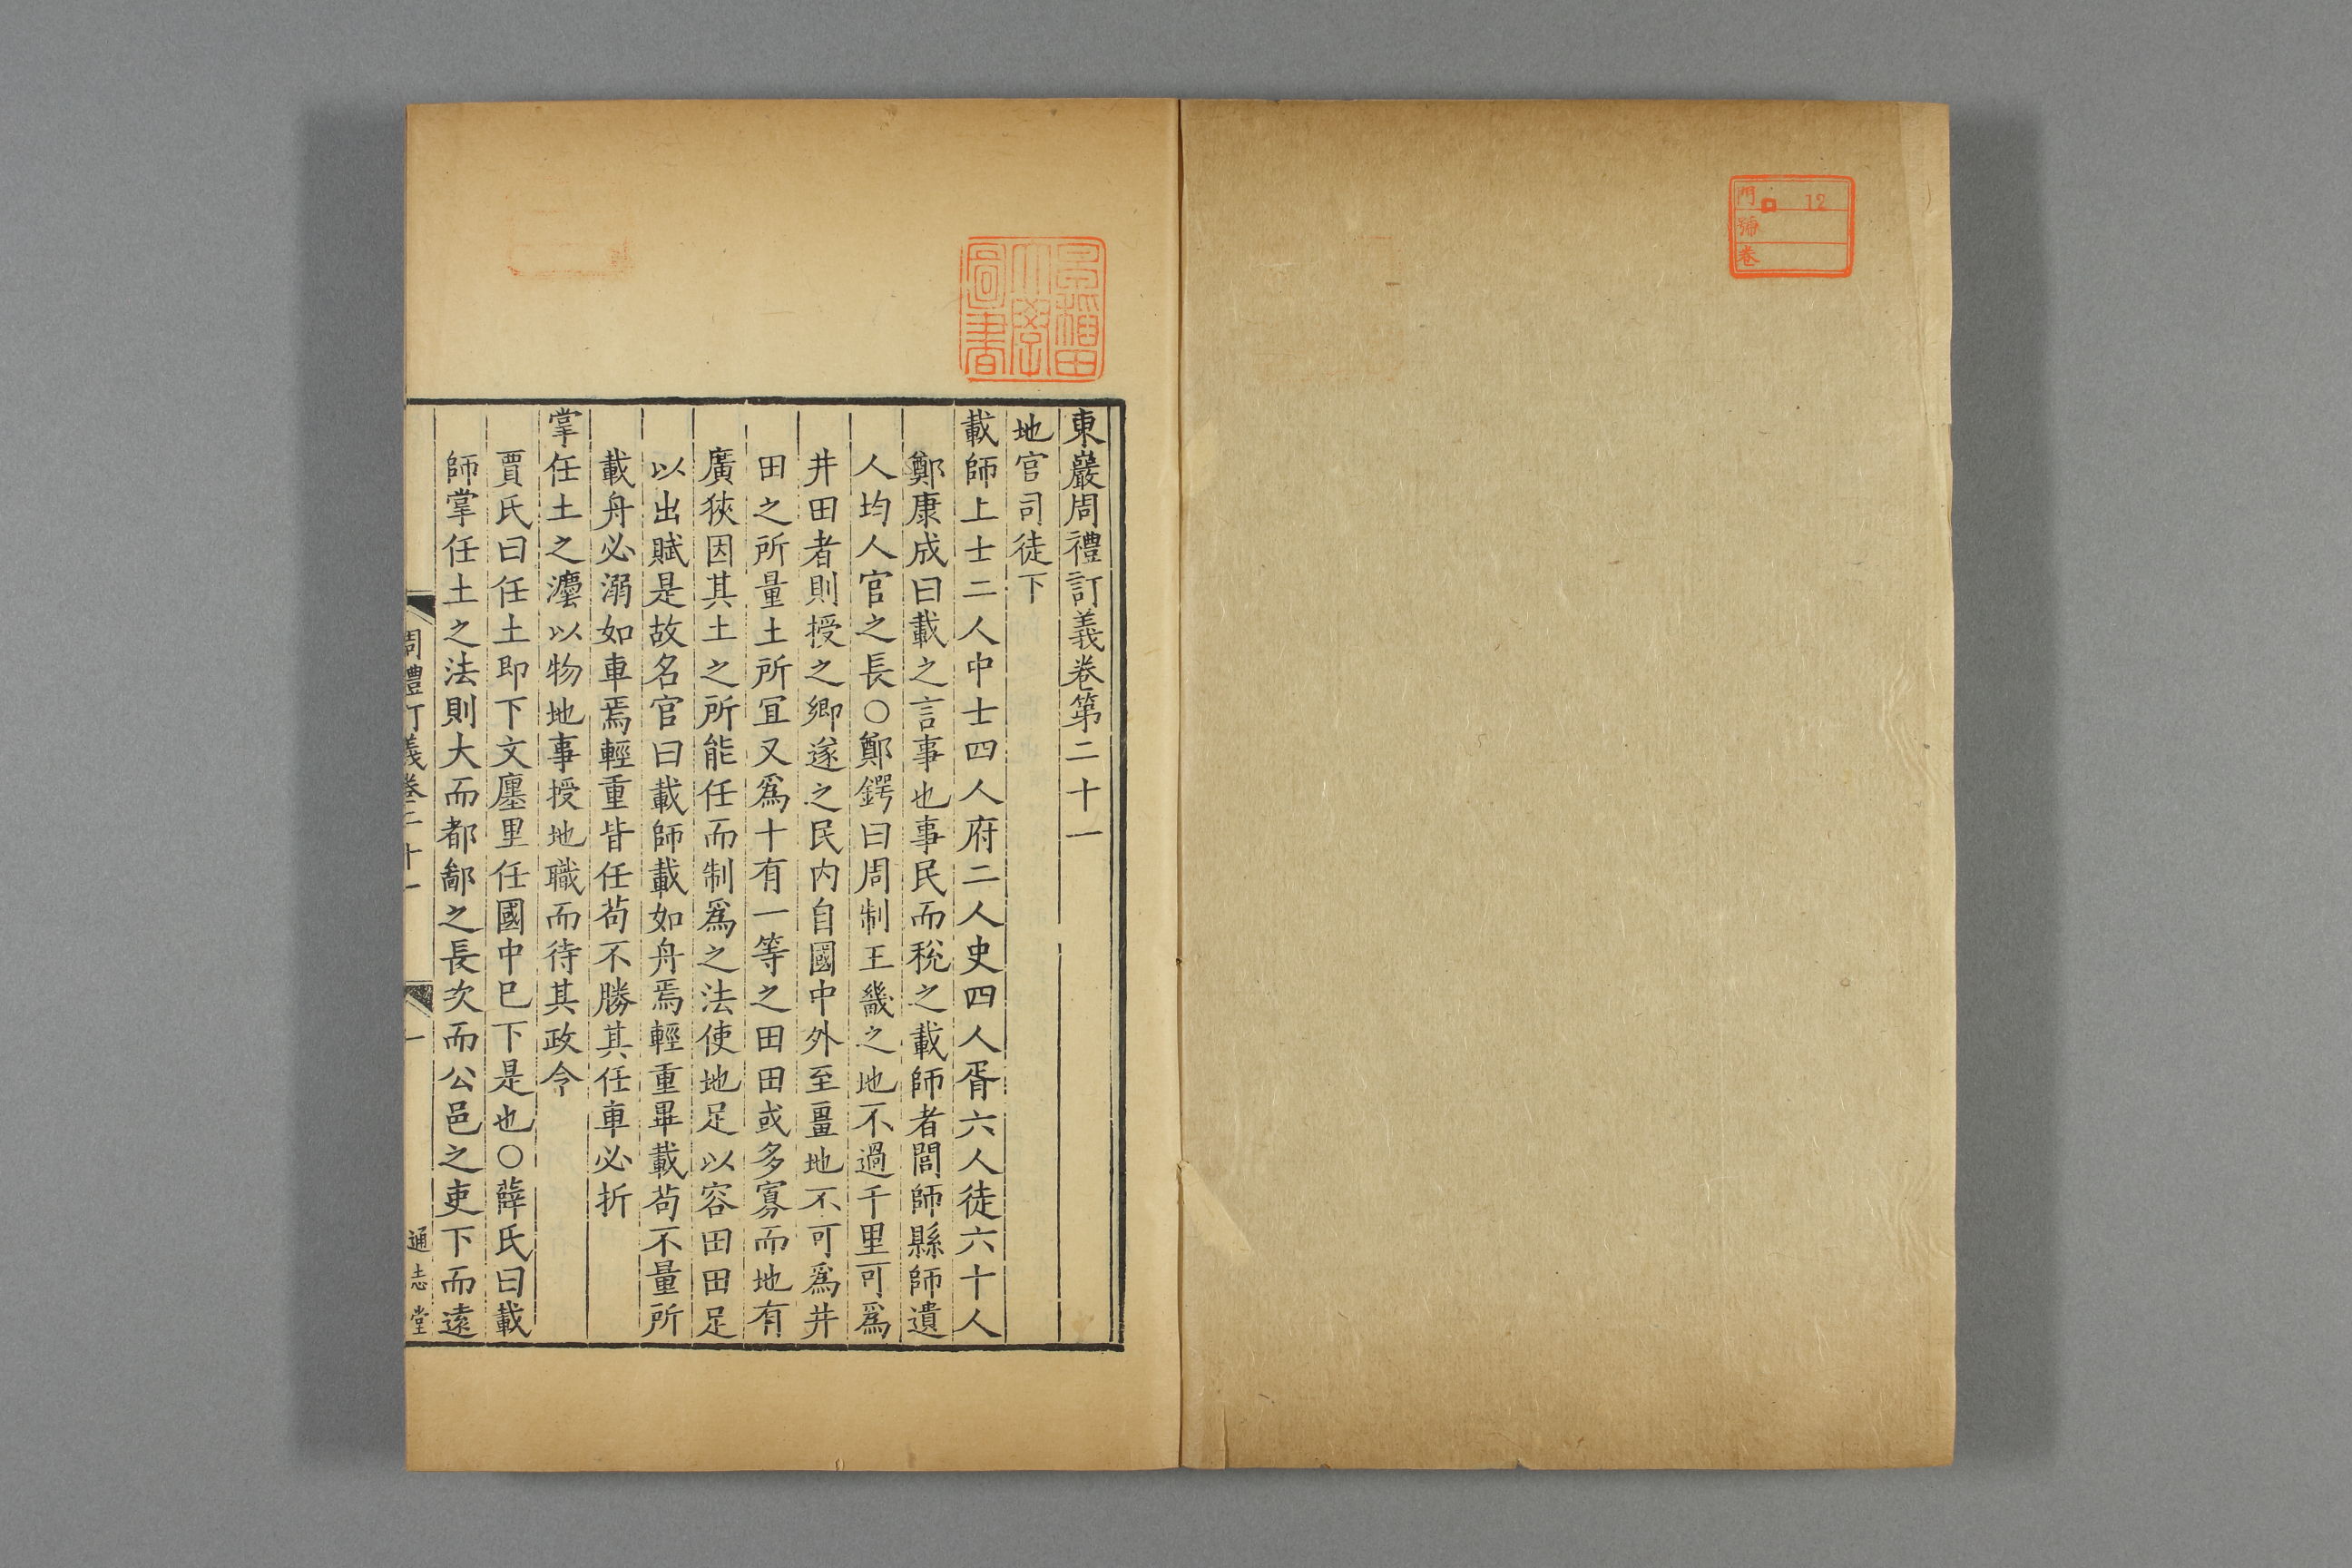 門 12
號
卷
早稲田
大學
圖書
東巖周禮訂義卷第二十一
地官司徒下
載師上士二人中士四人府二人史四人胥六人徒六十人
鄭康成曰載之言事也事民而稅之載師者閭師縣師遺
人均人官之長○鄭鍔曰周制王畿之地不過千里可爲
井田者則授之鄉遂之民内自國中外至畺地不可爲井
田之所量土所冝又爲十有一等之田田或多寡而地有
廣狹因其土之所能任而制爲之法使地足以容田田足
以出賦是故名官曰載師載如舟焉輕重畢載茍不量所
載舟必溺如車焉輕重皆任茍不勝其任車必折
掌任土之灋以物地事授地職而待其政令
賈氏曰任土即下文廛里任國中已下是也○薛氏曰載
師掌任土之法則大而都鄙之長次而公邑之吏下而遠
周禮訂義卷二十一 一 通志堂